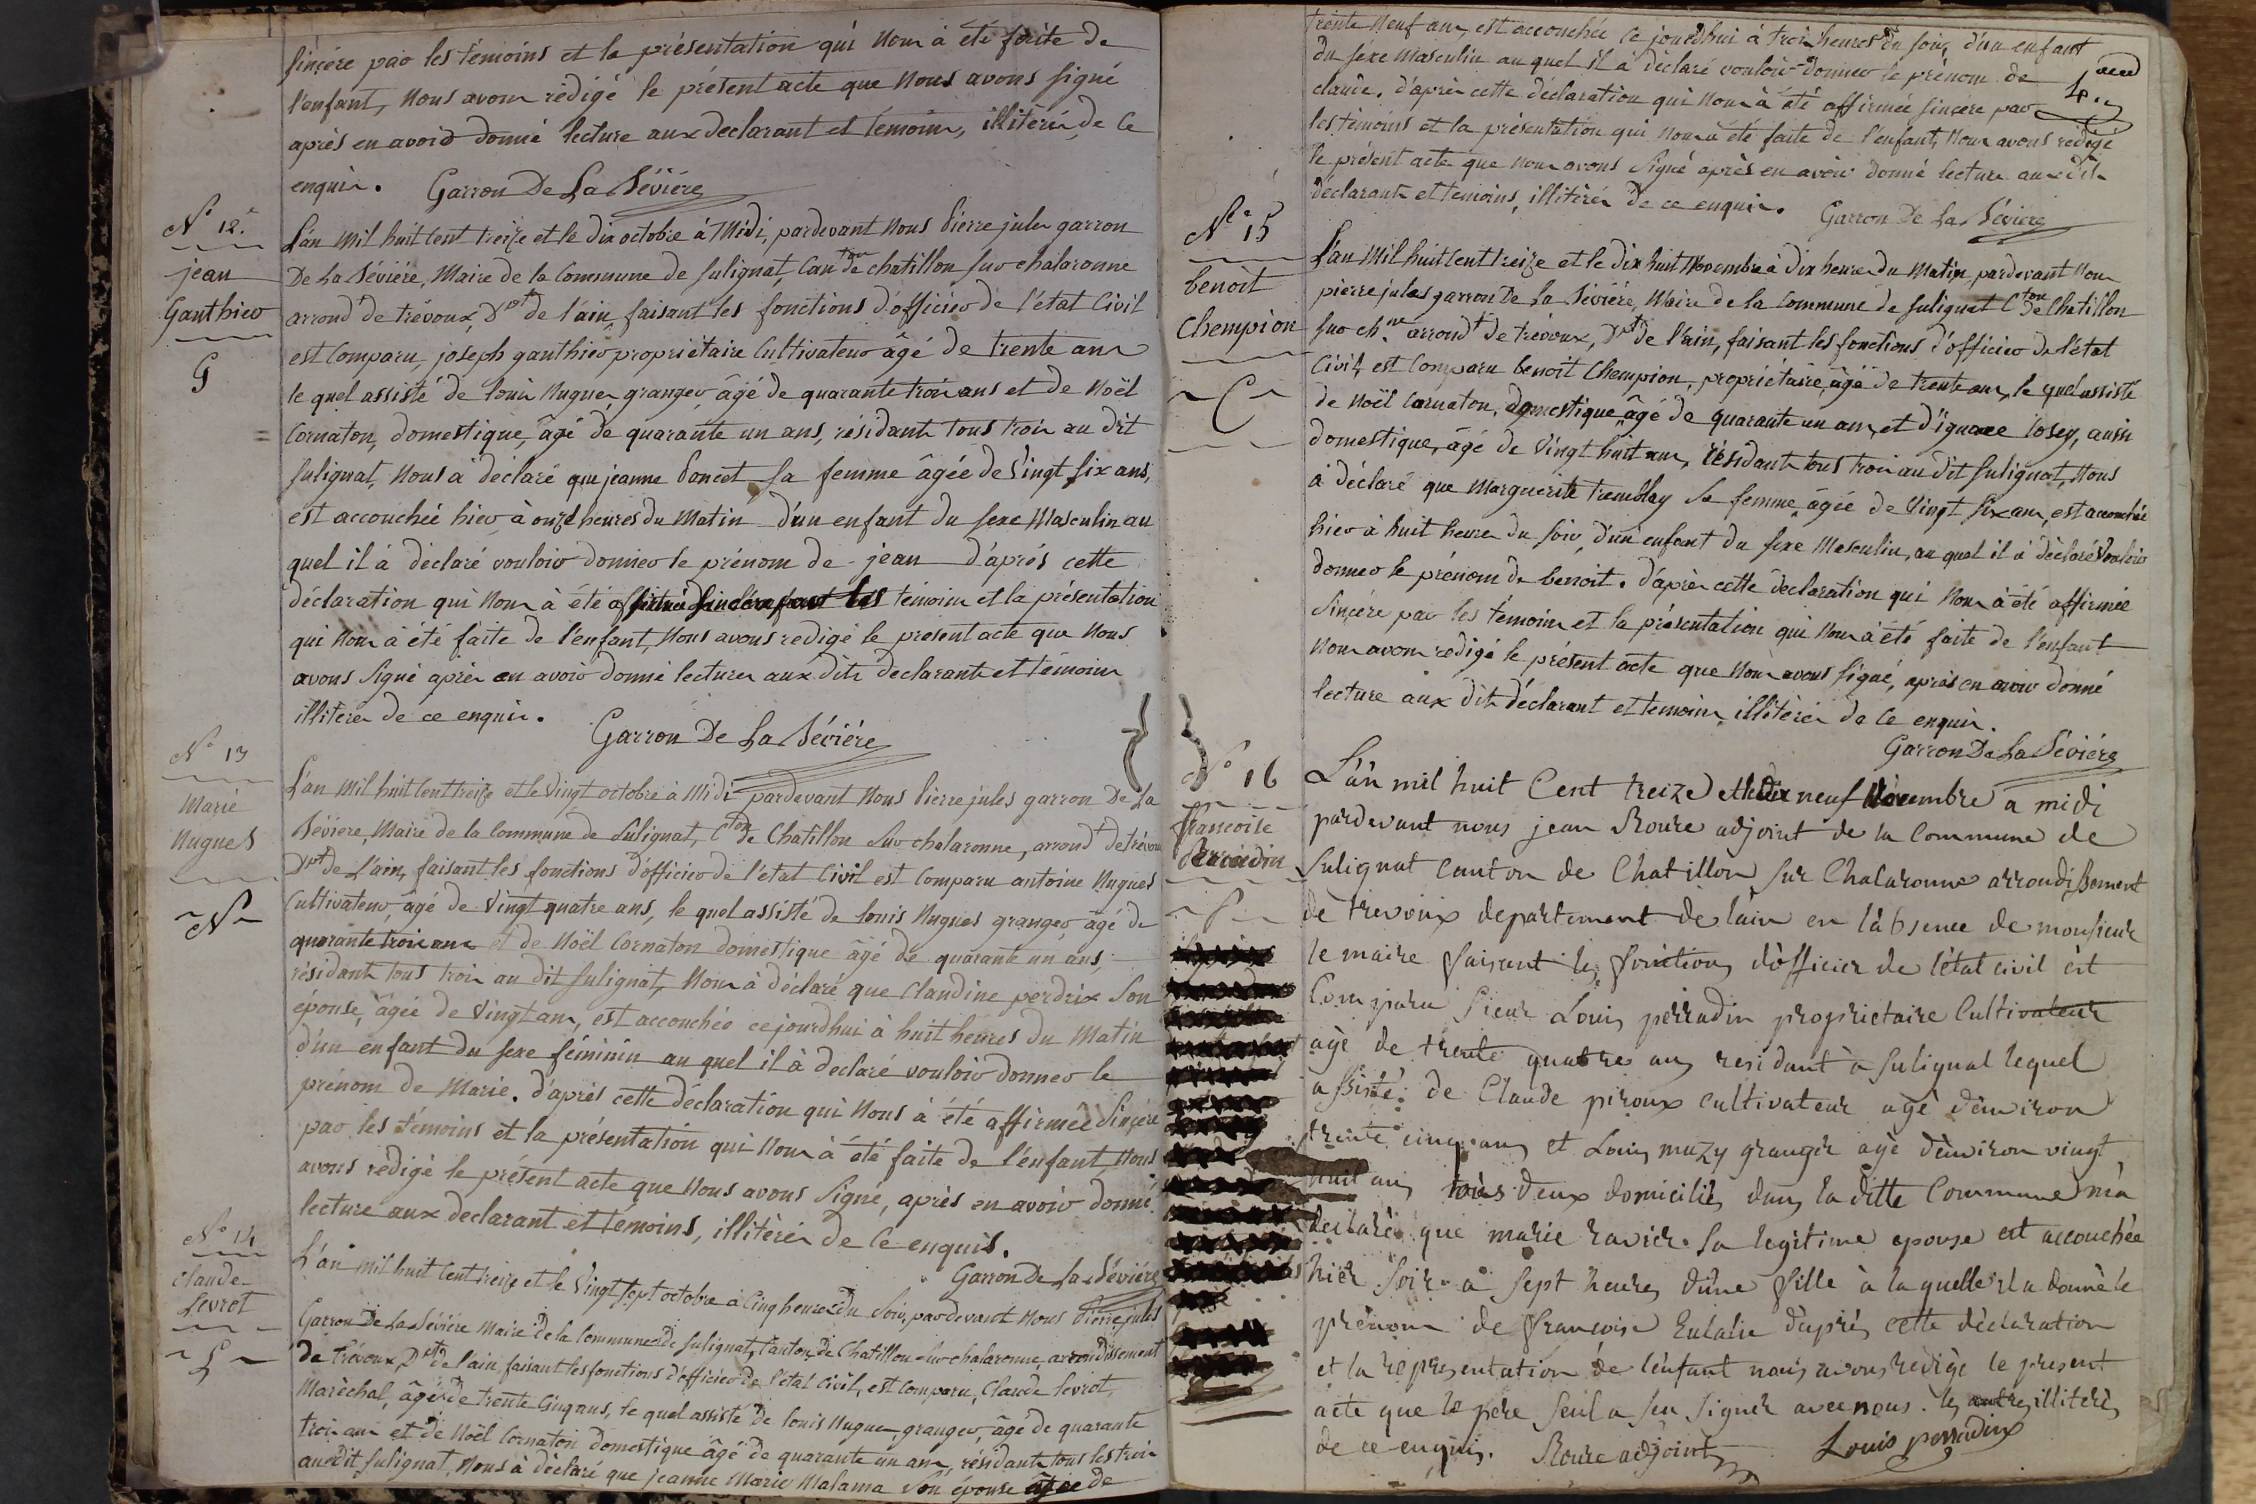 sincére par les témoins et la présentation qui nous à été faite de
l'enfant, nous avons rédigé le présent acte que nous avons signé
après en avoir donné lecture aux declarant et témoins, illitérés de ce
enquis. Garron De La Séviére
N° 12.e
jean
Gauthier
G
L'an mil huit cent treize et le dix octobre à midi, pardevant nous pierre jules garron
De La Séviére, Maire de la Commune de sulignat, Canton de chatillon sur chalaronne
arrondt de trévoux, Dpt de l'ain, faisant les fonctions d'officier de l'état Civil
est Comparu, joseph gauthier propriétaire Cultivateur âgé de trente ans
le quel assisté de louis Nugues, granger, âgé de quarante trois ans et de Noël
Cornaton, domestique, âgé de quarante un ans, résidants tous trois au dit
sulignat, nous à déclaré que jeanne Poncet sa femme âgée de vingt six ans,
est accouchée hier à onze heures du Matin d'un enfant du sexe Masculin au
quel il à déclaré vouloir donner le prénom de jean d'après cette
déclaration qui nous à été affirmée sincére par les témoins et la présentation
qui nous à été faite de l'enfant, nous avons redigé le present acte que nous
avons signé après en avoir donné lectures aux dits declarants et témoins
illitérés de ce enquis. Garron De La Séviére
N° 13
Marie
Nugues
N
L'an mil huit cent treize et le vingt octobre à midi pardevant nous Pierre jules garron De La
Séviere, Maire de la Commune de Sulignat, Cton de Chatillon sur chalaronne, arrondt de trévoux
Dpt de l'ain, faisant les fonctions d'officier de l'état Civil est Comparu antoine Nugues
Cultivateur, âgé de vingt quatre ans, le quel assisté de louis Nugues granger, âgé de
quarante trois ans et de Noël Cornaton domestique âgé de quarante un ans,
résidants tous trois au dit sulignat, nous à déclaré que Claudine perdrix son
épouse, âgée de vingt ans, est accouchée cejourdhui à huit heures du Matin
d'un enfant du sexe féminin au quel il à déclaré vouloir donner le
prénom de Marie. d'après cette déclaration qui nous à été affirmée sincére
par les témoins et la présentation qui nous à été faite de l'enfant, nous
avons rédigé le présent acte que nous avons signé, après en avoir donné
lecture aux declarant et témoins, illitérés de ce enquis.
Garron De La Séviére
N° 14
claude
Levrot
L
L'an mil huit cent treize et le vingt sept octobre à Cinq heures du soir, pardevant nous Pierre jules
Garron De La Séviére Maire de la Commune de sulignat, Canton de Chatillon sur chalaronne, arrondissement
de trévoux, Dpt de l'ain, faisant les fonctions d'officier de l'état Civil, est Comparu, Claude levrot,
Maréchal, âgé de trente Cinq ans, le quel assisté de louis Nugues, granger, âgé de quarante
trois ans et de Noël Cornaton domestique âgé de quarante un ans, résidants tous les trois
audit sulignat, nous à déclaré que jeanne Marie Malama son épouse âgée de
trente neuf ans, est accouchée ce jourdhui à trois heures du soir, d'un enfant
du sexe Masculin au quel il à déclaré vouloir donner le prénom de
claude. d'après cette déclaration qui nous à été affirmée sincére par
les témoins et la présentation qui nous à été faite de l'enfant, nous avons redigé
le présent acte que nous avons signé après en avoir donné lecture aux dits
déclarants et temoins, illitérés de ce enquis. Garron De La Séviere
N° 15
benoit
Chempion
C
L'an mil huit cent treize et le dix huit Novembre à dix heures du Matin, pardevant nous
pierre jules garron De La Séviére, Maire de la Commune de sulignat Cton de Chatillon
sur chne arrondt de trévoux, Dpt de l'ain, faisant les fonctions d'officier de l'état
Civil, est Comparu benoit Chempion, propriétaire, âgé de trente ans, le quel assisté
de Noël Cornaton, domestique, âgé de quarante un ans, et d'ignace josey, aussi
domestique, âgé de vingt huit ans, résidants tous trois au dit sulignat, nous
à déclaré que Marguerite tremblay sa femme, âgée de vingt six ans, est accouchée
hier à huit heures du soir, d'un enfant du sexe Masculin, au quel il à déclaré vouloir
donner le prénom de benoit. d'après cette déclaration qui nous à été affirmée
sincére par les témoins et la présentation qui nous à été faite de l'enfant
nous avons redigé le présent acte que nous avons signé, après en avoir donné
lecture aux dits déclarant et témoins, illitérés de ce enquis.
Garron De La Séviére
N° 16
francoise
Perradin
P
L'an mil huit Cent treize et le dix neuf Novembre a midi
pardevant nous jean Roure adjoint de la Commune de
Sulignat Canton de Chatillon sur Chalaronne arrondissement
de trevoux departement de lain en labsence de monsieur
le maire faisant les fonctions d'officier de l'état civil est
Comparu sieur Louis perradin proprietaire Cultivateur
agé de trente quatre ans residant à Sulignat lequel
assisté de Claude piroux cultivateur agé denviron
trente cinq ans et Louis muzy granger agé denviron vingt
huit ans tous deux domiciliés dans la ditte Commune m'a
declaré que marie ravier sa legitime epouse est accouchée
hier soir a sept heures d'une fille à la quelle il a donné le
prénom de francoise Eulalie d'après cette déclaration
et la representation de l'enfant nous avons redigé le present
acte que le père seul a seu signer avec nous. les autres illitérés
de ce enquis. Roure adjoint Louis perradin